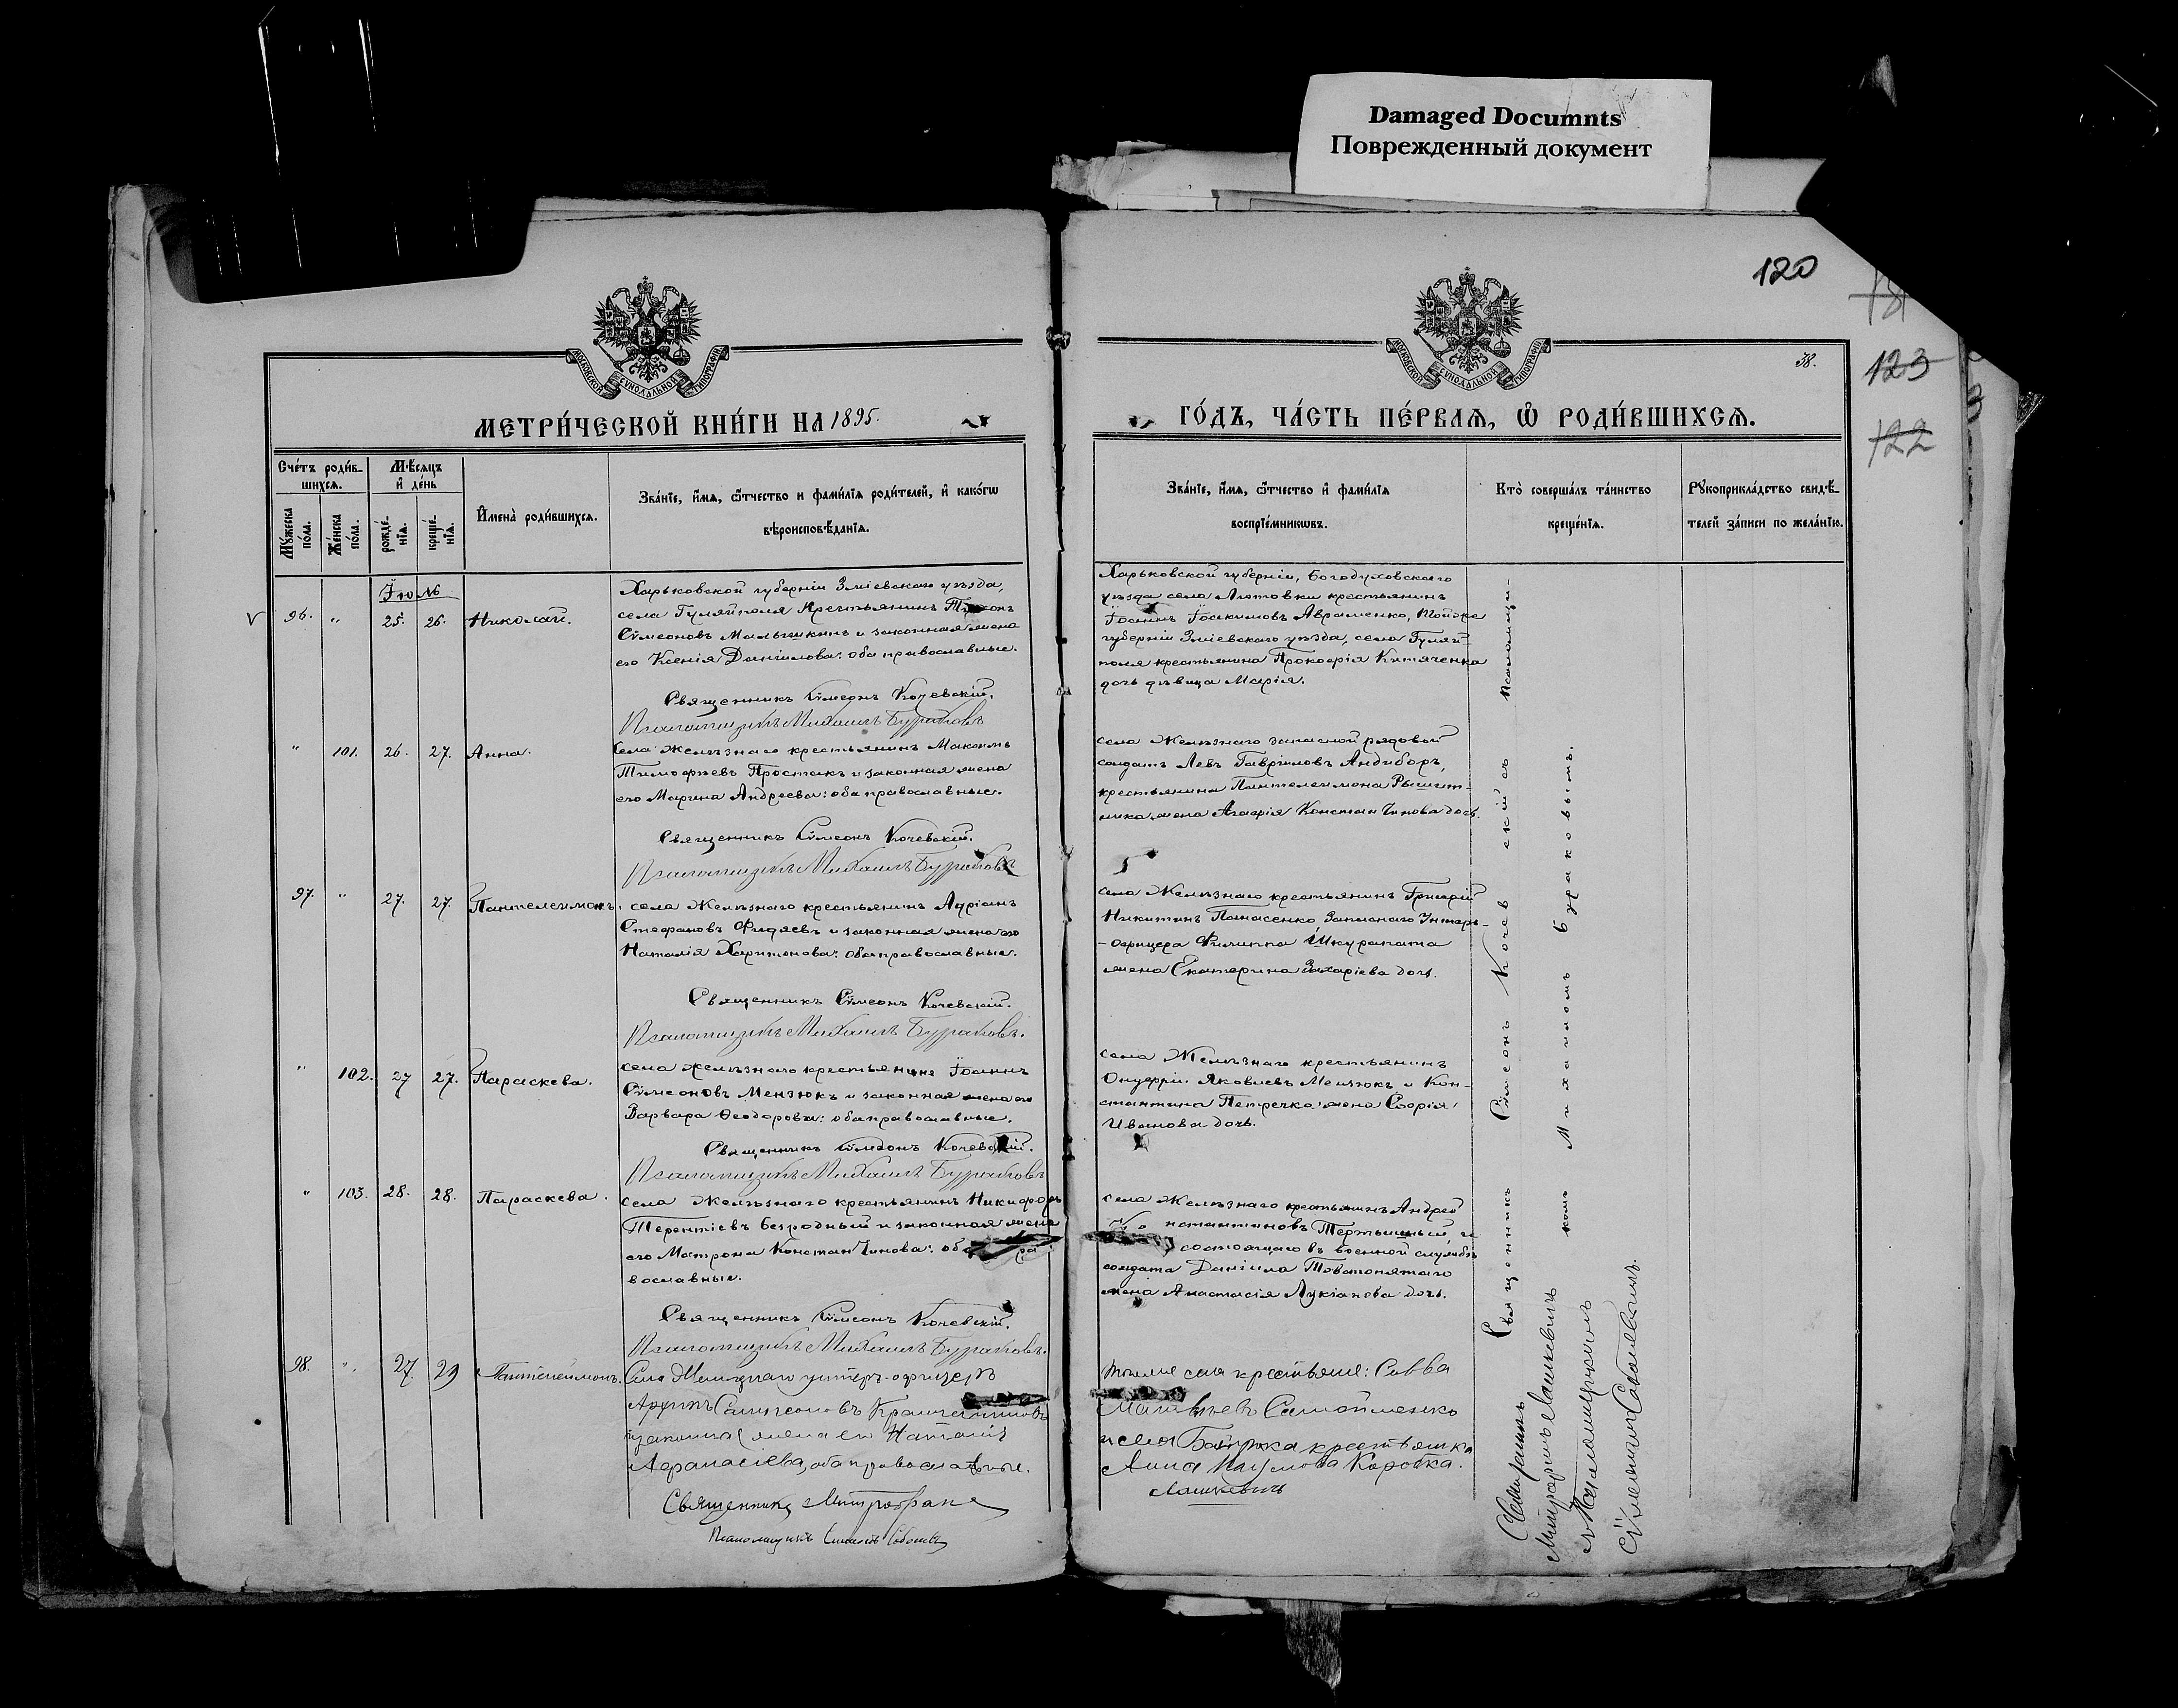 Damaged Documnts
Поврежденный документ
120
123
122
38.
МОСКОВСКОЙ СУНОДАЛЬНОЙ ТИПОГРАФІИ
МОСКОВСКОЙ СУНОДАЛЬНОЙ ТИПОГРАФІИ
МЕТРИ́ЧЕСКОЙ КНИ́ГИ НА 1895.
ГО́ДЪ, ЧА́СТЬ ПЕ́РВАѦ, Ѽ РОДИ́ВШИХСѦ.
Сче́тъ роди́в-
шихсѧ.
Мѣ́сѧцъ
и҆ де́нь
Мꙋ́жеска по́ла.
Же́нска по́ла.
рожде́-
нїѧ.
креще́-
нїѧ.
И҆мена̀ роди́вшихсѧ.
Зва́нїе, и҆́мѧ, ѻ҆́тчество и фами́лїѧ роди́телей, и҆ како́гѡ
вѣроисповѣ́данїѧ.
Зва́нїе, и҆́мѧ, ѻ҆́тчество и҆ фами́лїѧ
воспрїе́мникѡвъ.
Кто̀ соверша́лъ та́инство
креще́нїѧ.
Рꙋкоприкла́дство свидѣ́-
телей за́писи по жела́нїю.
Іюль
96. " 25. 26. Николай.
Харьковской губерніи Зміевскаго уѣзда,
села Гуляйполя крестьянинъ Тихонъ
Сѵмеоновъ Малышкинъ и законная жена
его Ксенія Даніилова: оба православные.
Священникъ Сѵмеонъ Кочевскій.
Псаломщикъ Михаилъ Бураковъ
Харьковской губерніи, Богодуховскаго
уѣзда села Лютовки крестьянинъ
Іоаннъ Іоакимовъ Авраменко, той же
губерніи Зміевскаго уѣзда, села Гуляй-
поля крестьянина Прокофія Китяченка
дочь дѣвица Марія.
" 101. 26. 27. Анна.
Села Желѣзнаго крестьянинъ Максимъ
Тимофѣевъ Простакъ и законная жена
его Марина Андреева: оба православные.
Священникъ Сѵмеонъ Кочевскій.
Псаломщикъ Михаилъ Бураковъ
села Желѣзнаго запасной рядовой
солдатъ Левъ Гавріиловъ Андиборъ,
крестьянина Пантелеимона
жена Агафія Константинова дочь.
97. " 27. 27. Пантелеимонъ.
села Желѣзнаго крестьянинъ Адріанъ
Стефановъ Фидяевъ и законная жена его
Наталія Харитонова: оба православные.
Священникъ Сѵмеонъ Кочевскій.
Псаломщикъ Михаилъ Бураковъ.
села Желѣзнаго крестьянинъ Григорій
Никитинъ Панасенко запаснаго Унтеръ-
-офицера Филиппа Шкурапата
жена Екатерина Захаріева дочь.
" 102. 27 27. Параскева.
села Желѣзнаго крестьянинъ Іоаннъ
Сѵмеоновъ Мензюкъ и законная жена его
Варвара Ѳеодорова: оба православные.
Священникъ Сѵмеонъ Кочевскій.
Псаломщикъ Михаилъ Бураковъ
села Желѣзнаго крестьянинъ
Онуфрій Яковлевъ Мензюкъ и Кон-
стантина Петречка жена Софія
Иванова дочь.
" 103. 28. 28. Параскева.
села Желѣзнаго крестьянинъ Никифоръ
Терентіевъ Безродный и законная жена
его Матрона Константинова: оба пра-
вославные.
Священникъ Сѵмеонъ Кочевскій.
Псаломщикъ Михаилъ Бураковъ.
села Желѣзнаго крестьянинъ Андрей
Константиновъ Тертышный, и
состоящаго въ военной службѣ
солдата Даніила Товстопятаго
жена Анастасія Лукіанова дочь.
98. " 27. 29 Пантелеимонъ.
Села Желѣзнаго унтеръ-офицеръ
Сампсоновъ
и законная жена его Наталія
Афанасіева, оба православные.
Священникъ Митрофанъ
Лашкевичъ
Псаломщикъ
того же села крестьяне: Савва
Матвѣевъ Самойленко
и села крестьянка
Анна Наумова Коровка.
Священникъ Сѵмеонъ Кочевскій съ псаломщи-
комъ Михаиломъ Бураковымъ.
Священникъ
Митрофанъ Лашкевичъ
съ Псаломщикомъ